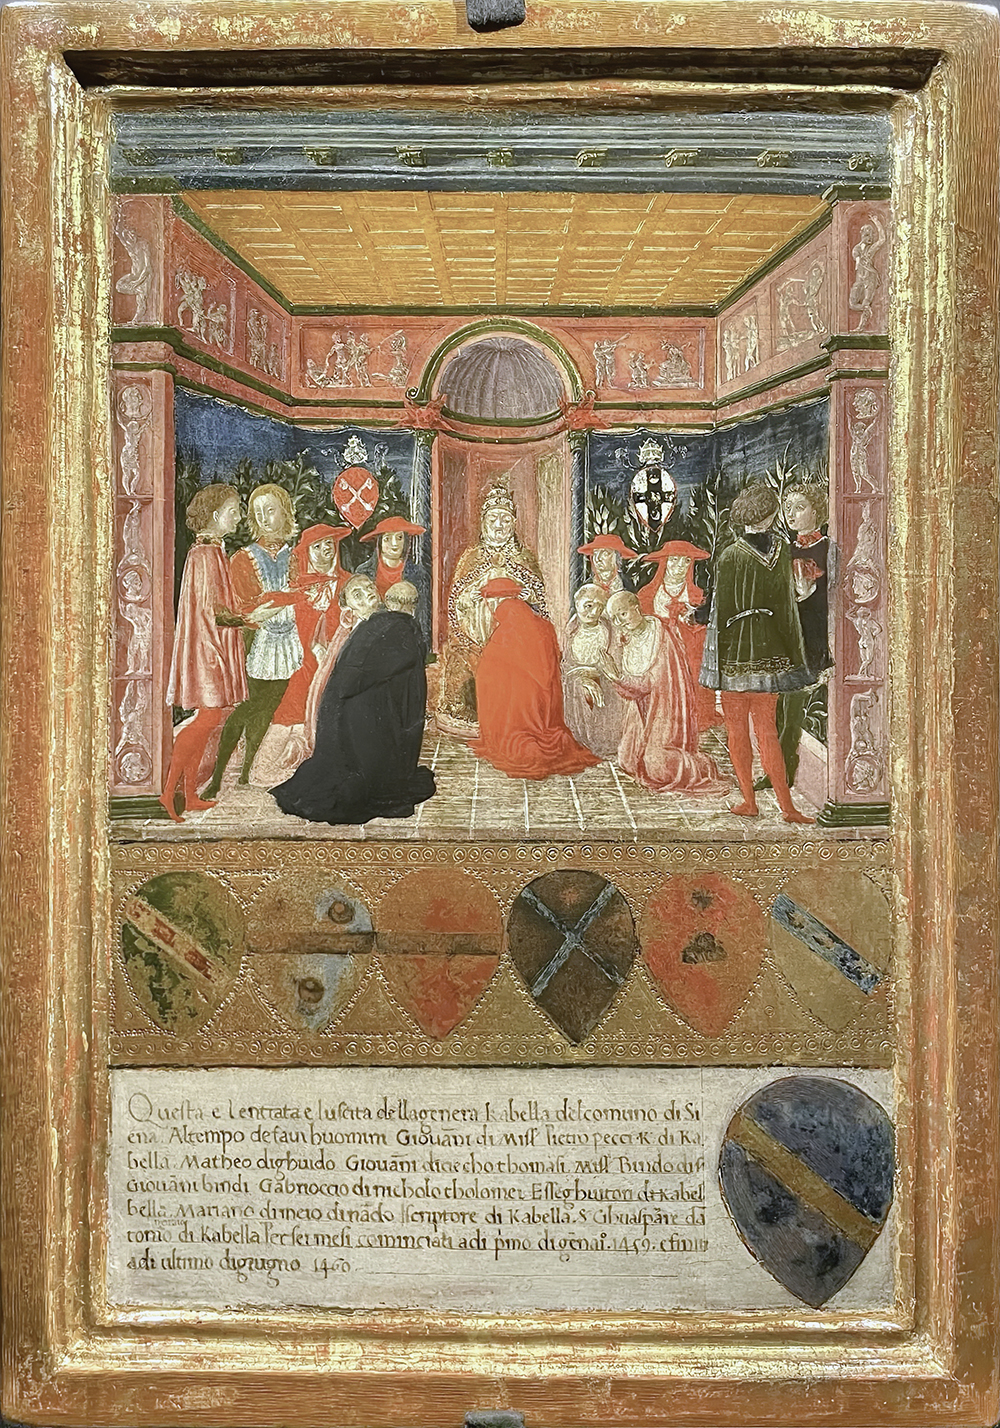 Questa e lentrata e luscita della genera kabella del comuno di Si
ena. Altempo de savi huomini Giovāni di Miss̄ Pietro pecci K. di Ka
bella. Matheo dighuido Giovāni diciecho thomasi. Miss̄ Bindo di
Giovāni bindi Gabrioccio di nicholo tholomei Esseghuitori di kabel
bella. Mariano di di nādo scriptore di Kabella. S
di Kabella Per sei mesi cominciati adi p̄mo di gēnaio. 1459. e finiti
adi ultimo digiugno 1460.